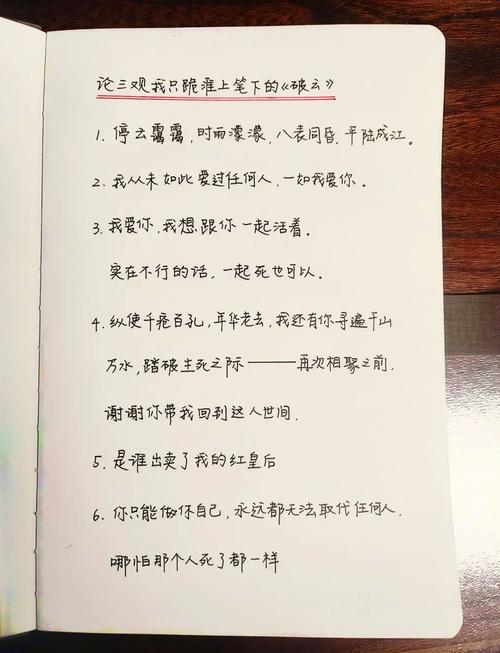 论三观我只跪淮上笔下的《破云》
1. 停云霭霭，时雨濛濛，八表同昏，平陆成江。
2. 我从未如此爱过任何人，一如我爱你。
3. 我爱你，我想跟你一起活着。
实在不行的话，一起死也可以。
4. 纵使千疮百孔，年华老去，我还有你寻遍千山
万水，踏破生死之际———再次相聚之前．
谢谢你带我回到这人世间．
5. 是谁出卖了我的红皇后
6. 你只能做你自己，永远都无法取代任何人．
哪怕那个人死了都一样